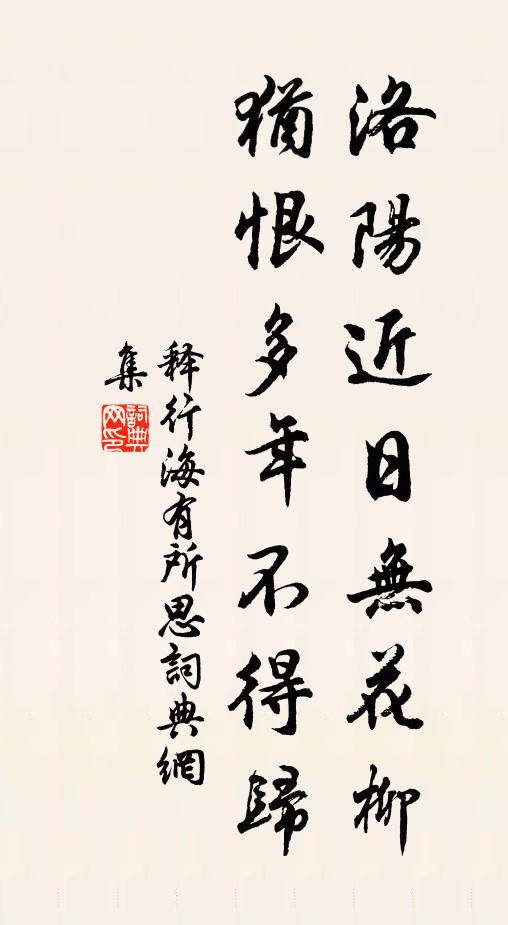 洛陽近日無花柳
猶恨多年不得歸
释行海有所思詞典網
集
詞典網印